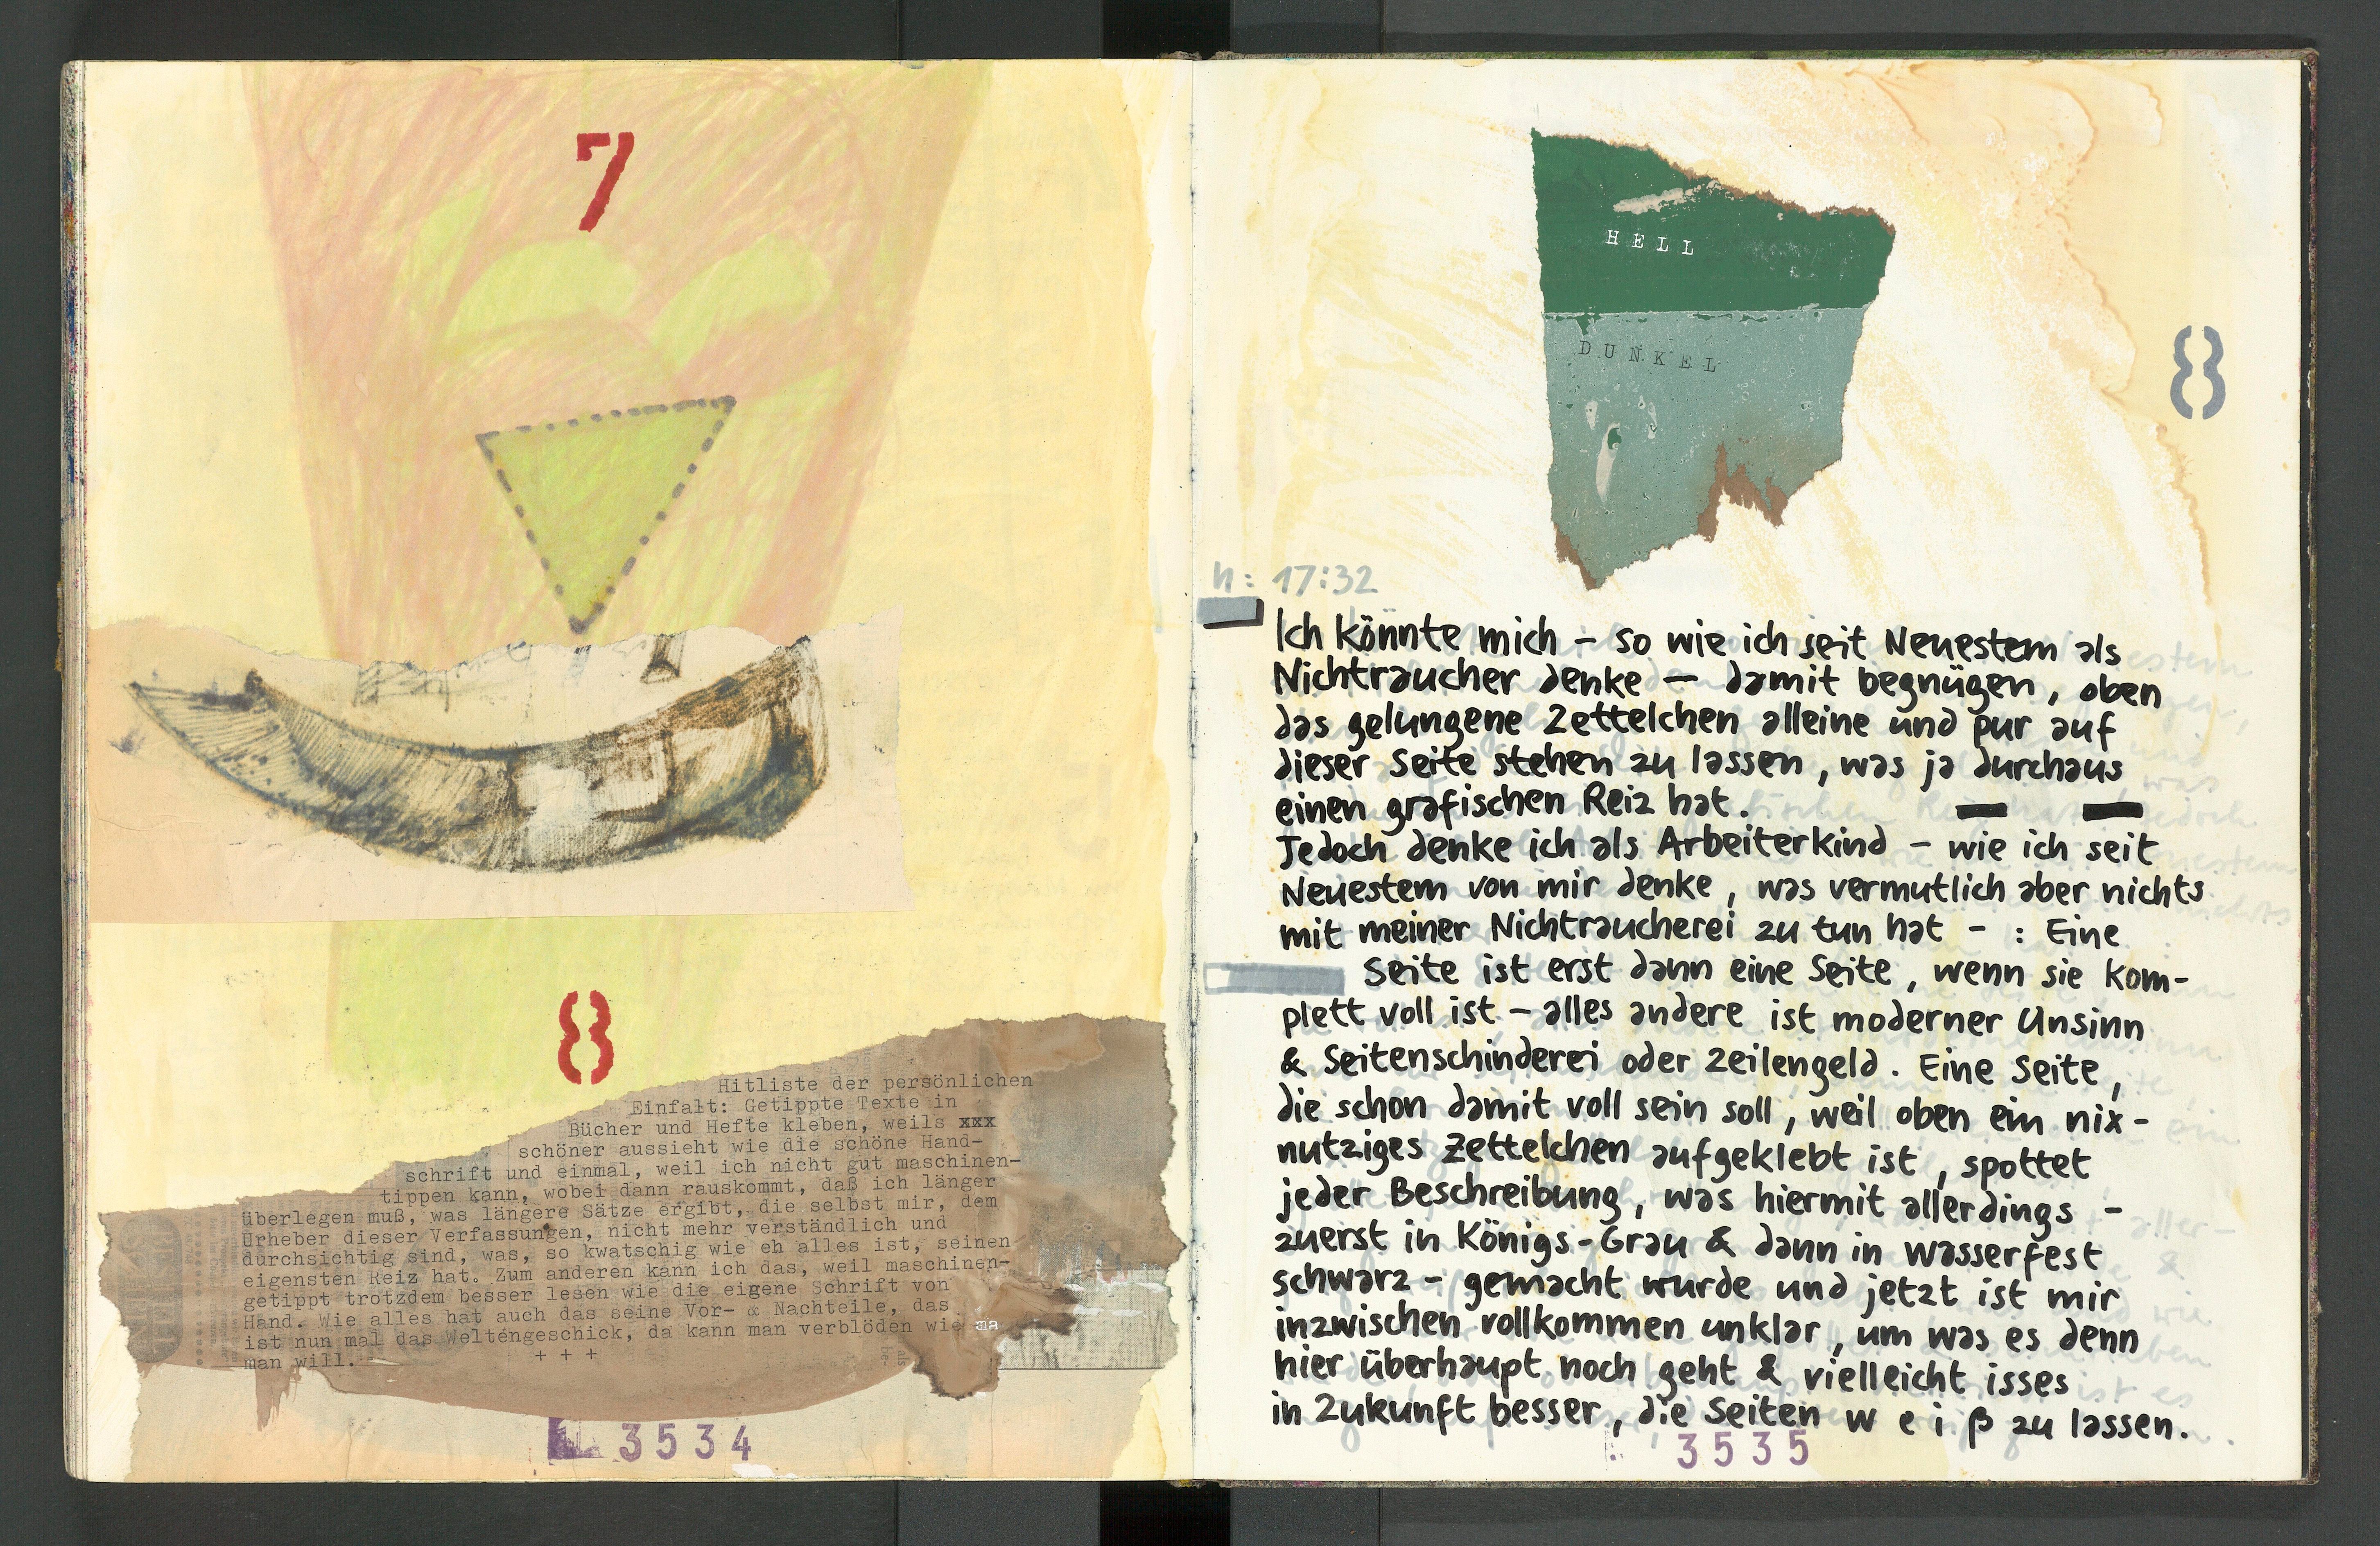 7
8
Hitliste der persönlichen
Einfalt: Getippte Texte in
Bücher und Hefte kleben, weils xxx
schöner aussieht wie die schöne Hand-
schrift und einmal, weil ich nicht gut maschinen-
tippen kann, wobei dann rauskommt, daß ich länger
überlegen muß, was längere Sätze ergibt, die selbst mir, dem
Urheber dieser Verfassungen, nicht mehr verständlich und
durchsichtig sind, was, so kwatschig wie eh alles ist, seinen
eigensten Reiz hat. Zum anderen kann ich das, weil maschinen-
getippt trotzdem besser lesen wie die eigene Schrift von
Hand. Wie alles hat auch das seine Vor- & Nachteile, das
ist nun mal das Welténgeschick, da kann man verblöden wie
man will.
+ + +
3534
HELL
DUNKEL
8
n: 17:32
Ich könnte mich – so wie ich seit Neuestem als
Nichtraucher denke — damit begnügen, oben
das gelungene Zettelchen alleine und pur auf
dieser Seite stehen zu lassen, was ja durchaus
einen grafischen Reiz hat.
Jedoch denke ich als Arbeiterkind – wie ich seit
Neuestem von mir denke, was vermutlich aber nichts
mit meiner Nichtraucherei zu tun hat – : Eine
Seite ist erst dann eine Seite, wenn sie kom-
plett voll ist – alles andere ist moderner Unsinn
& Seitenschinderei oder Zeilengeld. Eine Seite,
die schon damit voll sein soll, weil oben ein nix-
nutziges Zettelchen aufgeklebt ist, spottet
jeder Beschreibung, was hiermit allerdings –
zuerst in Königs-Grau & dann in wasserfest
schwarz – gemacht wurde und jetzt ist mir
inzwischen vollkommen unklar, um was es denn
hier überhaupt noch geht & vielleicht isses
in Zukunft besser, die Seiten w e i ß zu lassen.
3535